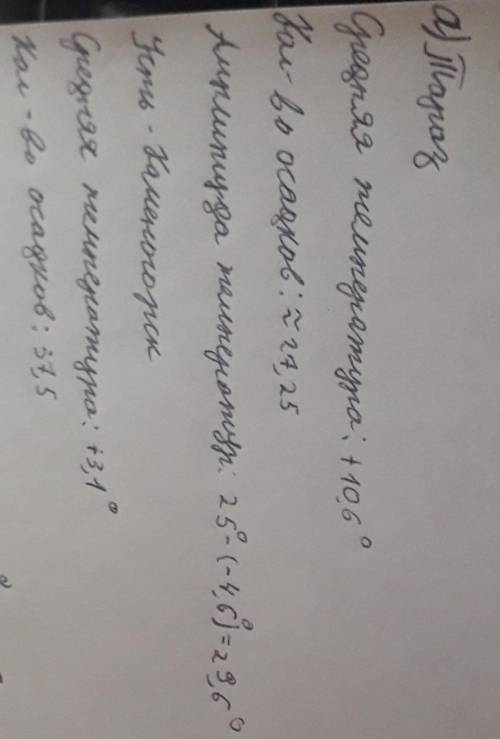 а) Тараз
Средняя температура: +10,6°
Кол-во осадков: ≈27,25
Амплитуда температур: 25°-(-4,6°)=29,6°
Усть-Каменогорск
Средняя температура: +3,1°
Кол-во осадков: 37,5